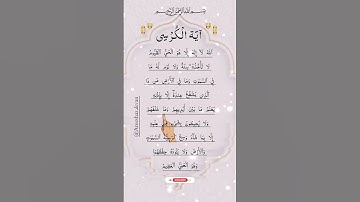 بِسْمِ اللَّهِ الرَّحْمَٰنِ الرَّحِيمِ
آيَةُ الْكُرْسِي
اللَّهُ لَا إِلَٰهَ إِلَّا هُوَ الْحَيُّ الْقَيُّومُ
لَا تَأْخُذُهُ سِنَةٌ وَلَا نَوْمٌ لَهُ مَا
فِي السَّمَوَتِ وَمَا فِي الْأَرْضِ مَنْ ذَا
الَّذِي يَشْفَعُ عِنْدَهُ إِلَّا بِإِذْنِهِ
يَعْلَمُ مَا بَيْنَ أَيْدِيهِمْ وَمَا خَلْفَهُمْ
وَلَا يُحِيطُونَ بِشَيْءٍ مِنْ عِلْمِهِ
إِلَّا بِمَا شَاءَ وَسِعَ كُرْسِيُّهُ السَّمَوَتِ
وَالْأَرْضَ وَلَا يَئُودُهُ حِفْظُهُمَا
وَهُوَ الْعَلِيُّ الْعَظِيمُ